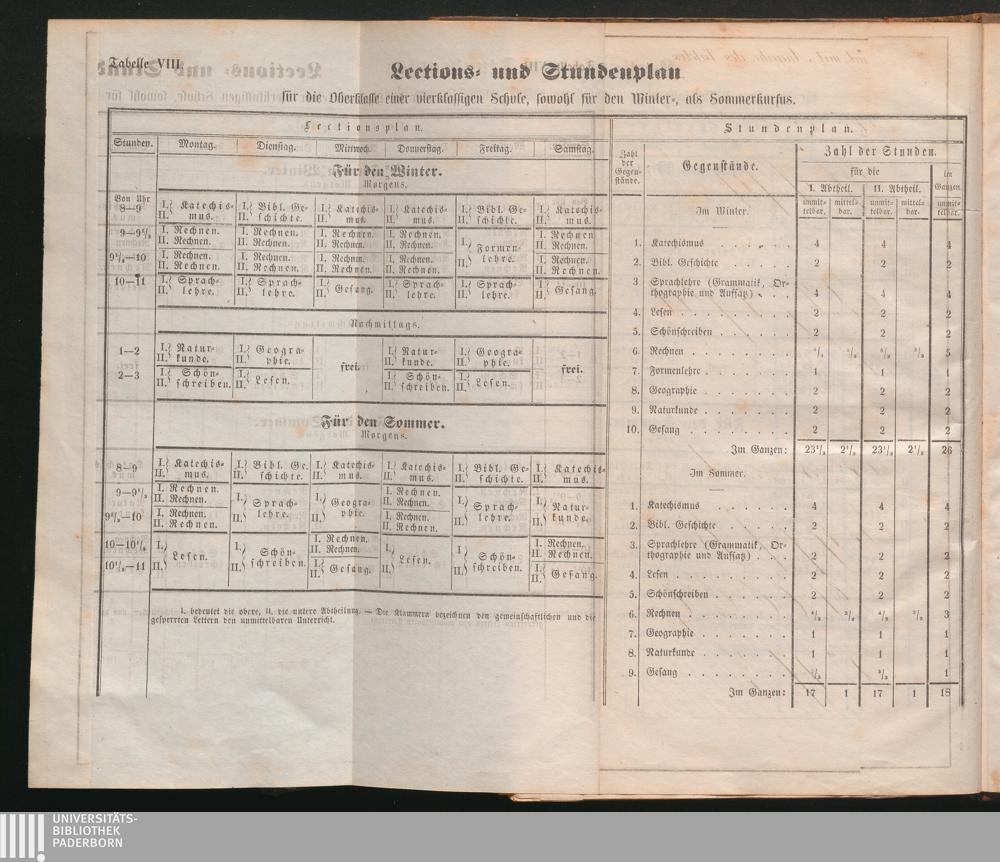 Tabelle VIII
Lections- und Stundenplan
für die Oberklasse einer vierklassigen Schule, sowohl für den Winter-, als Sommerkursus.
Lectionsplan.
Stunden. Montag. Dienstag. Mittwoch. Donnerstag. Freitag. Samstag.
Für den Winter.
Morgens.
Von Uhr
8—9 I. II. Katechismus. I. II. Bibl. Geschichte. I. II. Katechismus. I. II. Katechismus. I. II. Bibl. Geschichte. I. II. Katechismus.
9—9½ I. Rechnen. II. Rechnen. I. Rechnen. II. Rechnen. I. Rechnen. II. Rechnen. I. Rechnen. II. Rechnen. I. II. Formenlehre. I. Rechnen. II. Rechnen.
9½—10 I. Rechnen. II. Rechnen. I. Rechnen. II. Rechnen. I. Rechnen. II. Rechnen. I. Rechnen. II. Rechnen. I. Rechnen. II. Rechnen.
10—11 I. II. Sprachlehre. I. II. Sprachlehre. I. II. Gesang. I. II. Sprachlehre. I. II. Sprachlehre. I. II. Gesang.
Nachmittags.
1—2 I. II. Naturkunde. I. II. Geographie. frei. I. II. Naturkunde. I. II. Geographie. frei.
2—3 I. II. Schönschreiben. I. II. Lesen. I. II. Schönschreiben. I. II. Lesen.
Für den Sommer.
Morgens.
8—9 I. II. Katechismus. I. II. Bibl. Geschichte. I. II. Katechismus. I. II. Katechismus. I. II. Bibl. Geschichte. I. II. Katechismus.
9—9½ I. Rechnen. II. Rechnen. I. II. Sprachlehre. I. II. Geographie. I. Rechnen. II. Rechnen. I. II. Sprachlehre. I. II. Naturkunde.
9½—10 I. Rechnen. II. Rechnen. I. Rechnen. II. Rechnen.
10—10½ I. II. Lesen. I. II. Schönschreiben. I. Rechnen. II. Rechnen. I. II. Lesen. I. II. Schönschreiben. I. Rechnen. II. Rechnen.
10½—11 I. II. Gesang. I. II. Gesang.
I. bedeutet die obere, II. die untere Abtheilung. — Die Klammern bezeichnen den gemeinschaftlichen und die
gesperrten Lettern den unmittelbaren Unterricht.
Stundenplan.
Zahl der Gegenstände. Gegenstände. Zahl der Stunden.
für die Im Ganzen
I. Abtheil. II. Abtheil.
unmittelbar. mittelbar. unmittelbar. mittelbar. unmittelbar.
Im Winter.
1. Katechismus 4 4 4
2. Bibl. Geschichte 2 2 2
3. Sprachlehre (Grammatik, Orthographie und Aufsatz) 4 4 4
4. Lesen 2 2 2
5. Schönschreiben 2 2 2
6. Rechnen 5
7. Formenlehre 1 1 1
8. Geographie 2 2 2
9. Naturkunde 2 2 2
10. Gesang 2 2 2
Im Ganzen: 23½ 2½ 23½ 2½ 26
Im Sommer.
1. Katechismus 4 4 4
2. Bibl. Geschichte 2 2 2
3. Sprachlehre (Grammatik, Orthographie und Aufsatz) 2 2 2
4. Lesen 2 2 2
5. Schönschreiben 2 2 2
6. Rechnen 3
7. Geographie 1 1 1
8. Naturkunde 1 1 1
9. Gesang 1
Im Ganzen: 17 1 17 1 18
UNIVERSITÄTS-
BIBLIOTHEK
PADERBORN